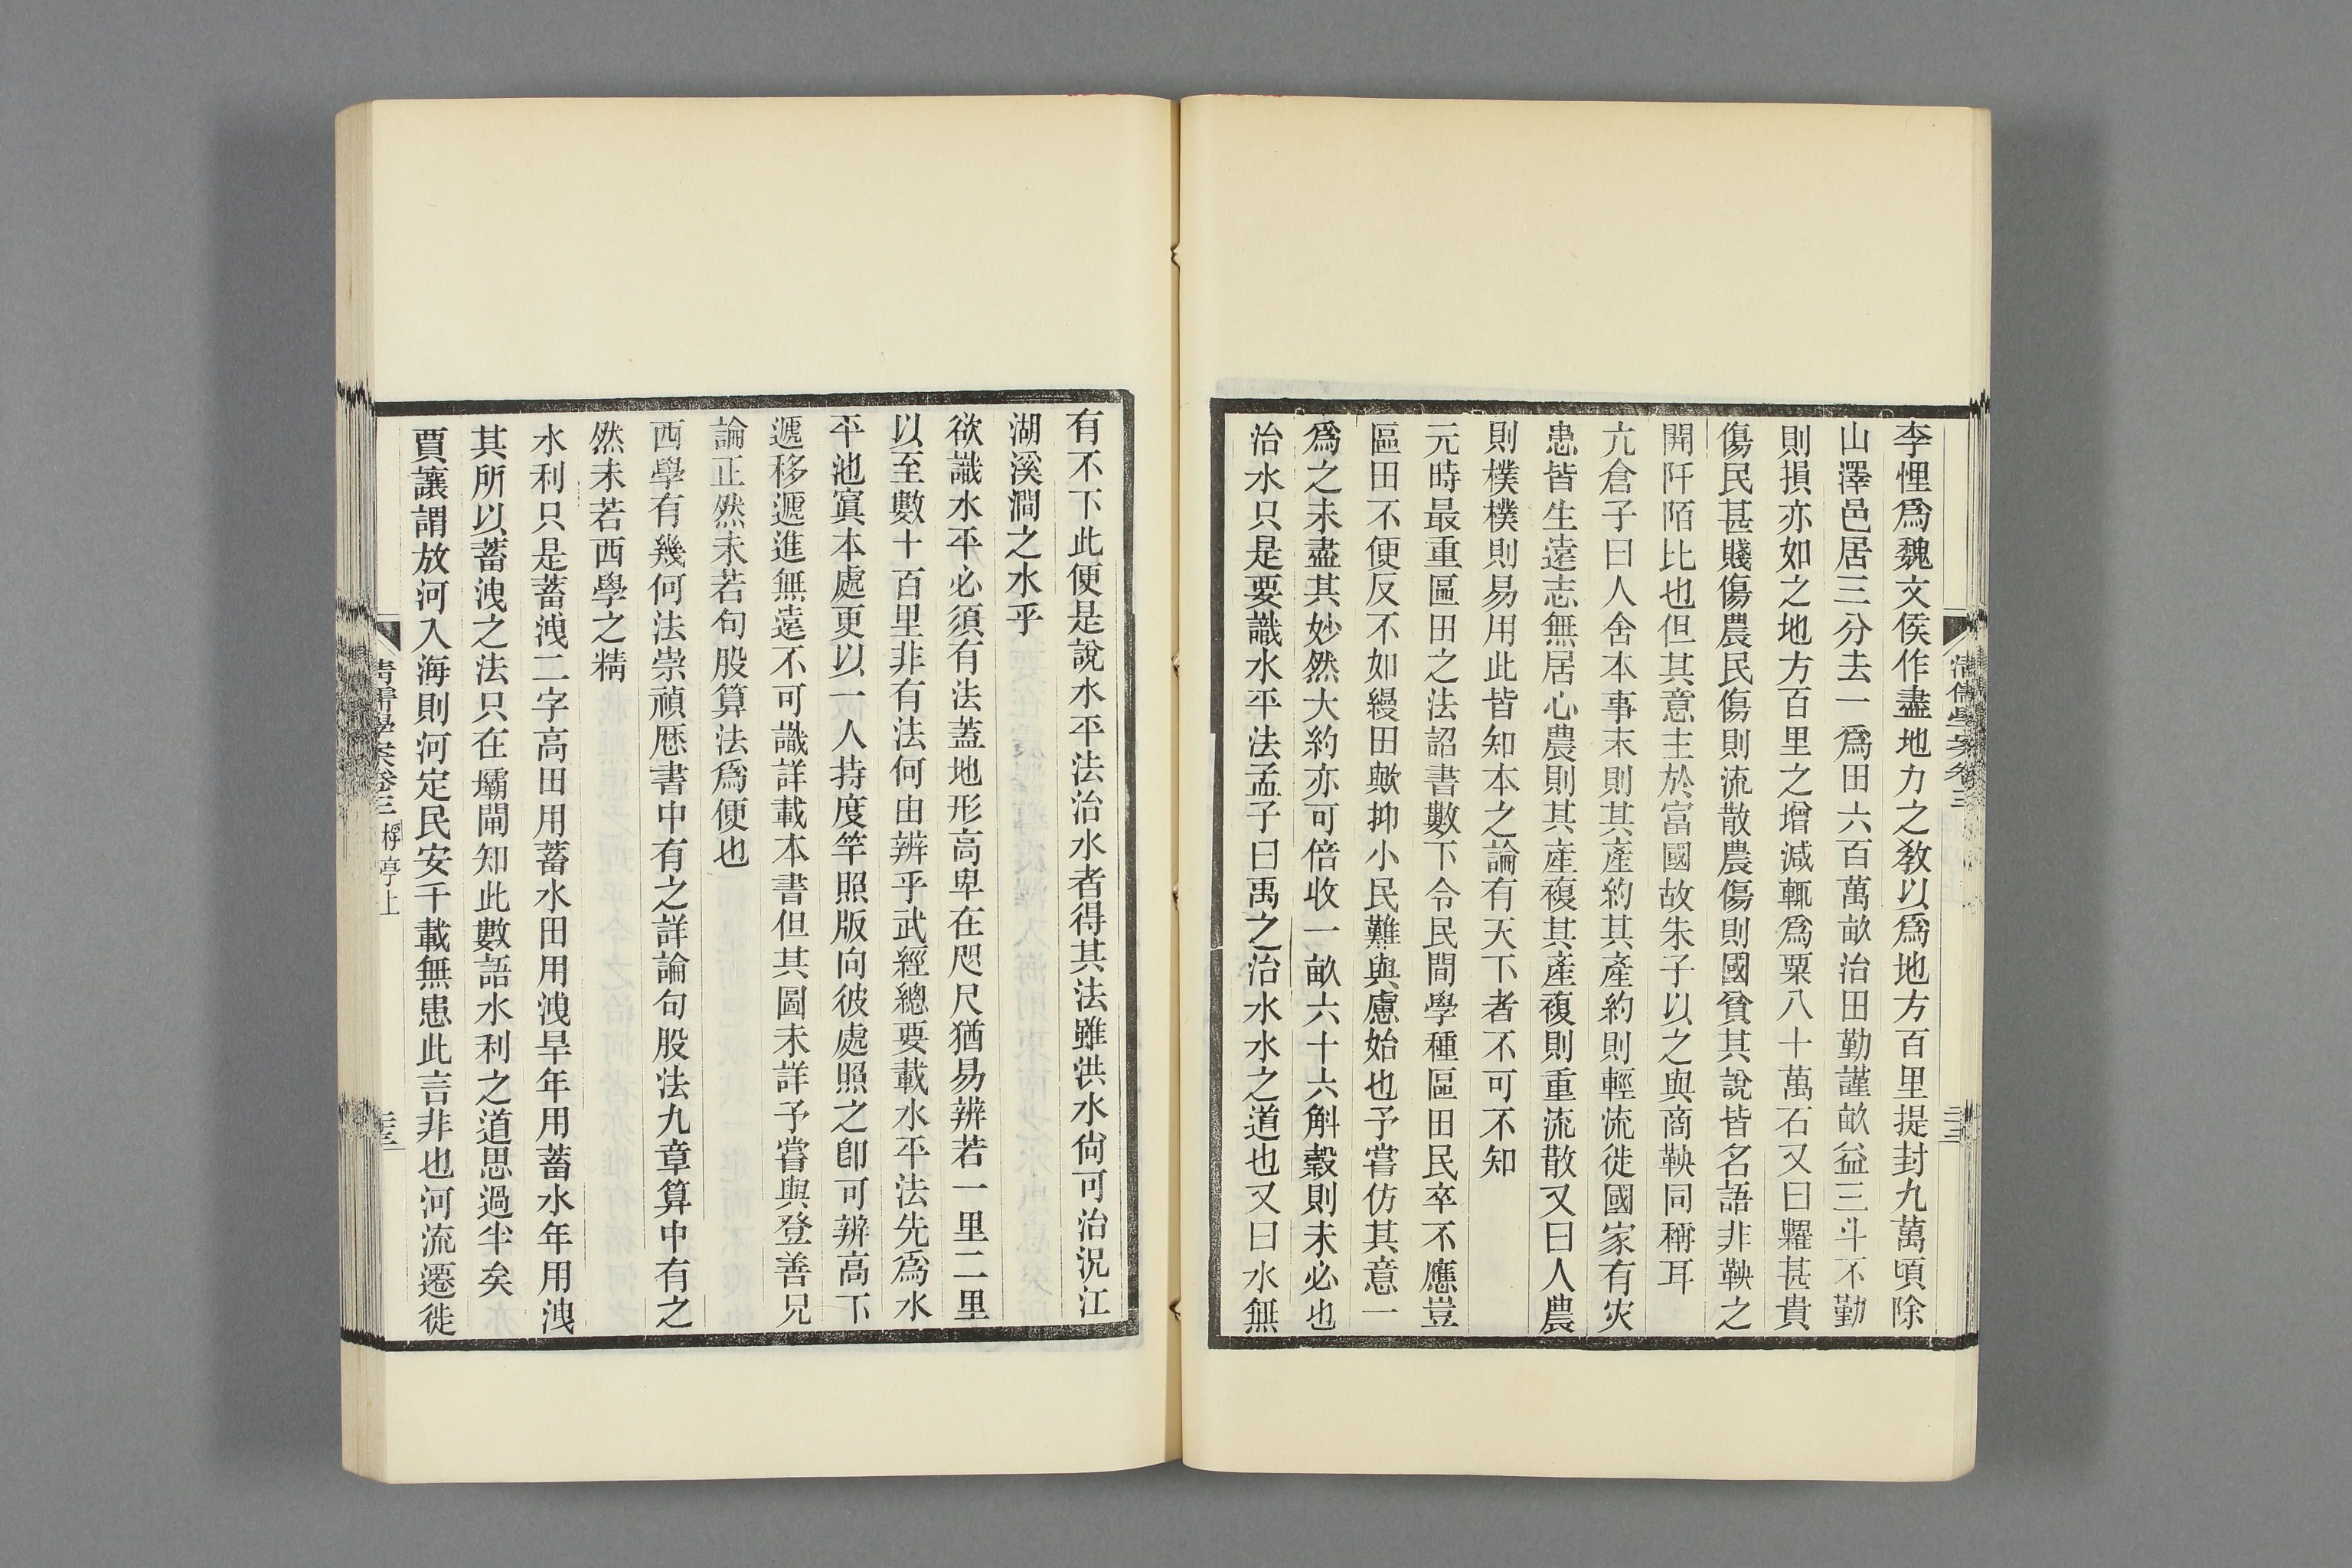 李悝爲魏文侯作盡地力之敎以爲地方百里提封九萬頃除
山澤邑居三分去一爲田六百萬畝治田勤謹畝益三斗不勤
則損亦如之地方百里之增減輒爲粟八十萬石又曰糶甚貴
傷民甚賤傷農民傷則流散農傷則國貧其說皆名語非鞅之
開阡陌比也但其意主於富國故朱子以之與商鞅同稱耳
亢倉子曰人舍本事末則其產約其產約則輕流徙國家有灾
患皆生遠志無居心農則其產複其產複則重流散又曰人農
則樸樸則易用此皆知本之論有天下者不可不知
元時最重區田之法詔書數下令民間學種區田民卒不應豈
區田不便反不如縵田歟抑小民難與慮始也予嘗仿其意一
爲之未盡其妙然大約亦可倍收一畝六十六斛穀則未必也
治水只是要識水平法孟子曰禹之治水水之道也又曰水無
清儒學案卷三
有不下此便是說水平法治水者得其法雖洪水尙可治況江
湖溪澗之水乎
欲識水平必須有法蓋地形高卑在咫尺猶易辨若一里二里
以至數十百里非有法何由辨乎武經總要載水平法先爲水
平池寘本處更以一人持度竿照版向彼處照之卽可辨高下
遞移遞進無遠不可識詳載本書但其圖未詳予嘗與登善兄
論正然未若句股算法爲便也
西學有幾何法崇禎厯書中有之詳論句股法九章算中有之
然未若西學之精
水利只是蓄洩二字高田用蓄水田用洩旱年用蓄水年用洩
其所以蓄洩之法只在壩閘知此數語水利之道思過半矣
賈讓謂放河入海則河定民安千載無患此言非也河流遷徙
清儒學案卷三 桴亭上